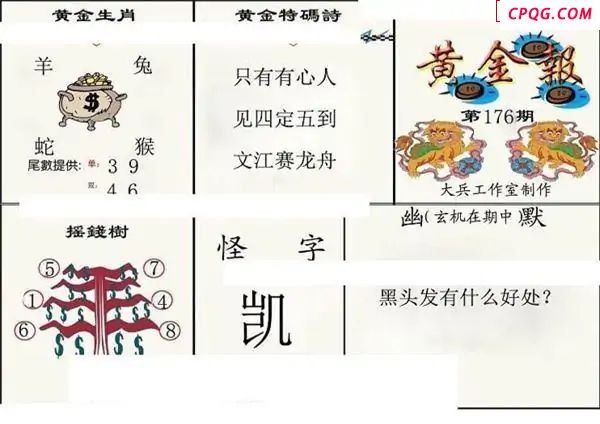 CPQG.COM
黄金生肖
羊 兔
蛇 猴
尾數提供: 单: 3 9
双: 4 6
黄金特碼詩
只有有心人
见四定五到
文江赛龙舟
黄金報
第176期
大兵工作室制作
摇錢樹
⑤ ⑦
① ④
⑥ ⑧
怪 字
凯
幽(玄机在期中)默
黑头发有什么好处?